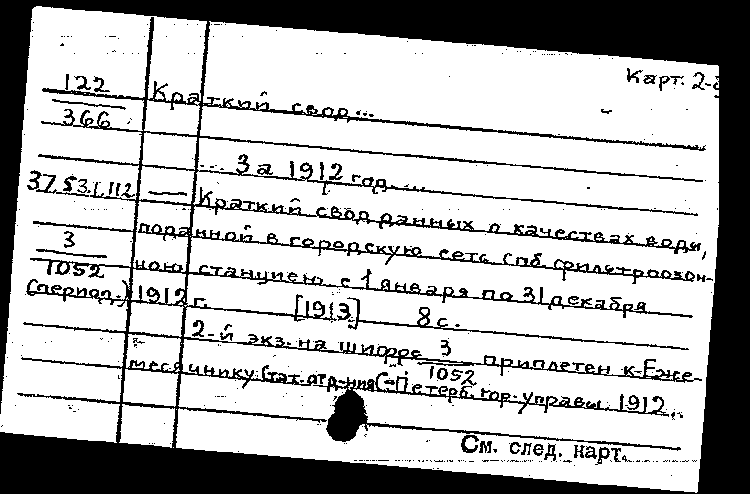 Карт. 2-я
122
366
Краткий свод...
... За 1912 год....
37.53.1.112 — Краткий свод данных о качествах воды,
3
1052
(период.)
поданной в городскую сеть Спб. фильтроозон-
ною станциею с 1 января по 31 декабря
1912 г. [1913] 8 с.
2-й экз. на шифре 3/1052 приплетен к Еже-
месячнику Стат. отд-ния С-Петерб. гор. управы. 1912..
См. след. карт.